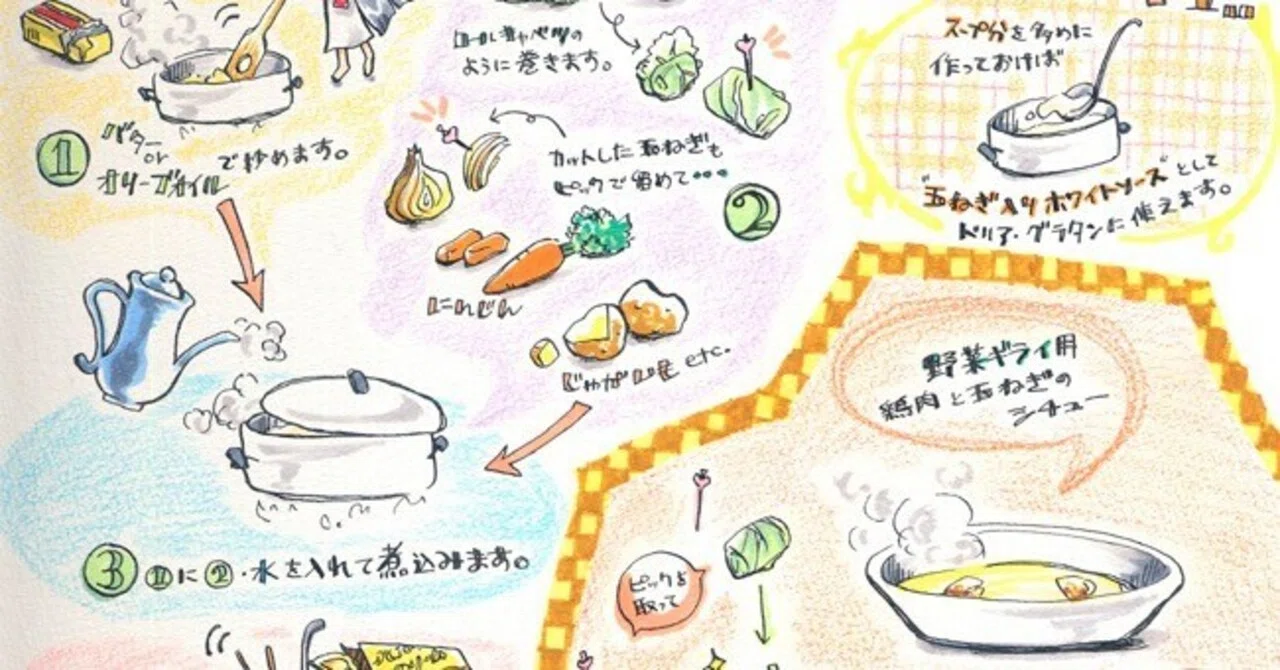 ①
バター
or
オリーブオイル
で炒めます。
ロールキャベツの
ように巻きます。
カットした玉ねぎも
ピックで留めて・・・
②
にんじん
じゃがいも etc.
③ ①に②・水を入れて煮込みます。
スープ分を多めに
作っておけば
"玉ねぎ入りホワイトソース"として
ドリア・グラタンに使えます。
野菜ギライ用
鶏肉と玉ねぎの
シチュー
ピックを
取って